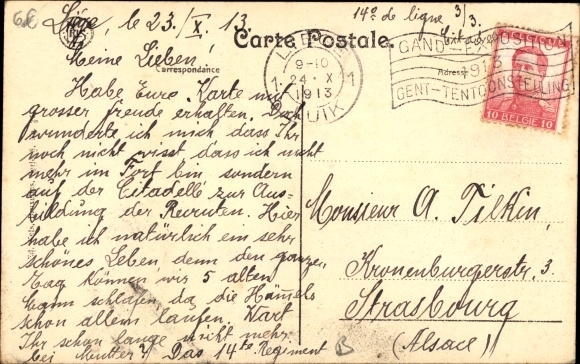 Lüge, le 23./X. 13.
14º de ligne 3/3.
Citadelle
Carte Postale.
Meine Lieben
Correspondance
Adresse
9-10
24 X
1913
GAND-EXPOSITION
1913
GENT-TENTOONSTELLING
10 BELGIE 10
Habe Eure Karte mit
grosser freude erhalten. Doch
wunderte ich mich dass Ihr
noch nicht wisst dass ich nicht
mehr im Fort bin sondern
auf der Citadelle zur Aus-
bildung der Recruten. Hier
habe ich natürlich ein sehr
schönes Leben, denn den ganzen
Tag können wir 5 alten
dann schlafen da die Hämmels
schon allein laufen. Wart
Ihr schon lange nicht mehr
bei Mutter? Das 14te Regiment
Monsieur A. Filkin,
Kronenburgerstr. 3.
Strasbourg
(Alsace)
B